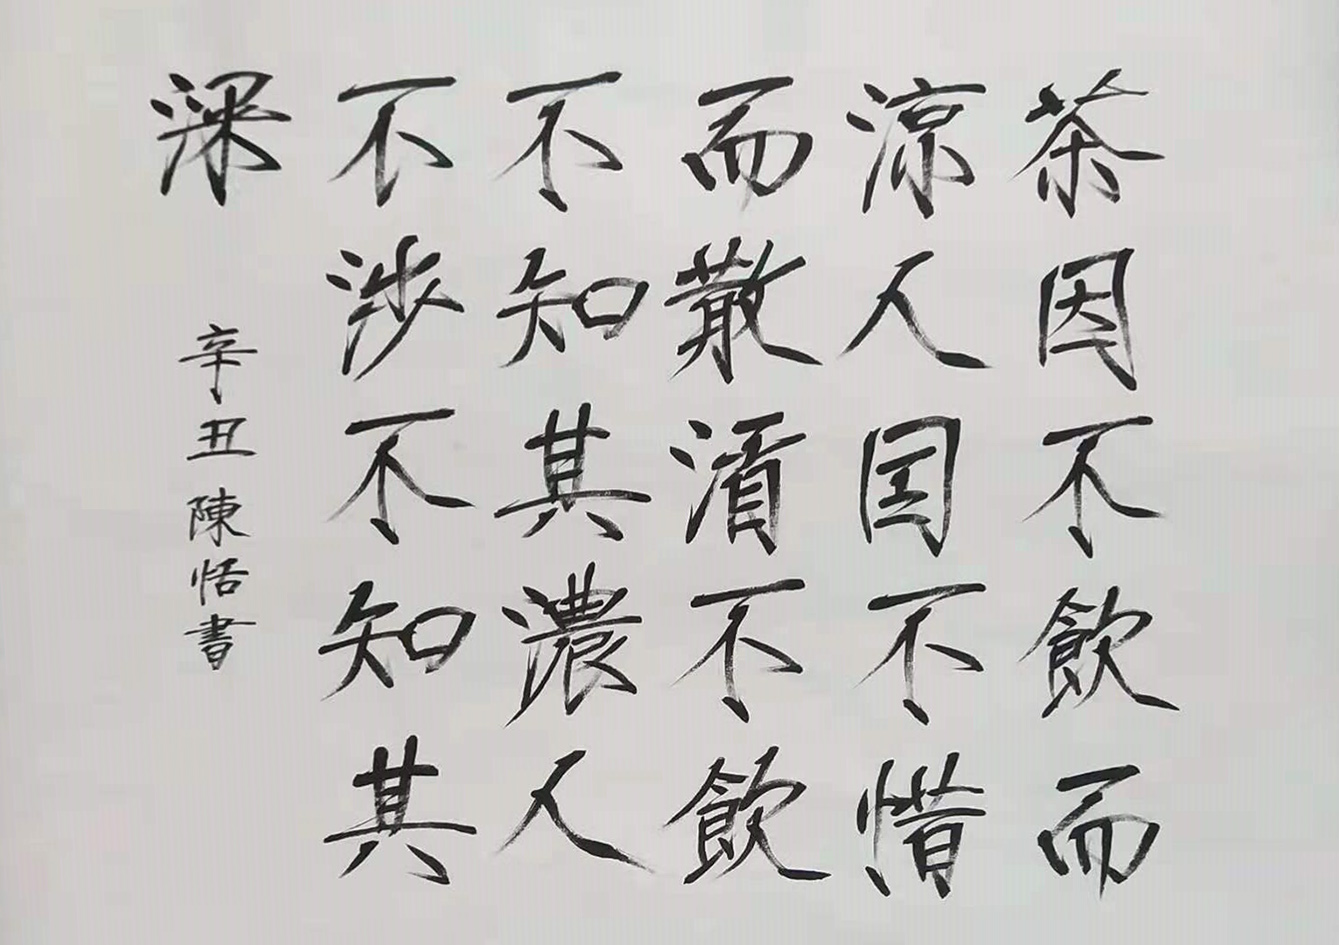 茶因不飲而
涼人因不惜
而散清不飲
不知其濃人
不涉不知其
深
辛丑陳恬書